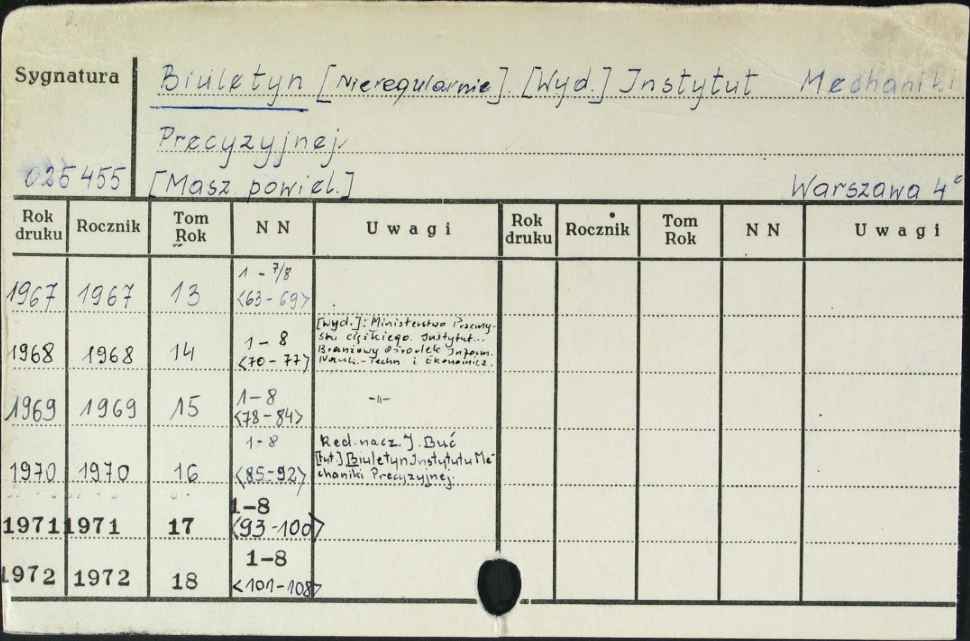 Sygnatura
Biuletyn [Nieregularnie]. [Wyd.] Instytut Mechaniki
Precyzyjnej
025455 [Masz powiel.] Warszawa 4°
Rok druku Rocznik Tom Rok NN Uwagi Rok druku Rocznik Tom Rok NN Uwagi
1967 1967 13 1-7/8 <63-69>
1968 1968 14 1-8 <70-77> [Wyd.]: Ministerstwo Przemy-
słu ciężkiego. Instytut...
Branżowy Ośrodek Inform.
Nauk.-Techn i Ekonomicz.
1969 1969 15 1-8 <78-84> -"-
1970 1970 16 1-8 <85-92> Red. nacz. J. Buć
[tyt] Biuletyn Instytutu Me-
chaniki Precyzyjnej.
1971 1971 17 1-8 <93-100>
1972 1972 18 1-8 <101-108>